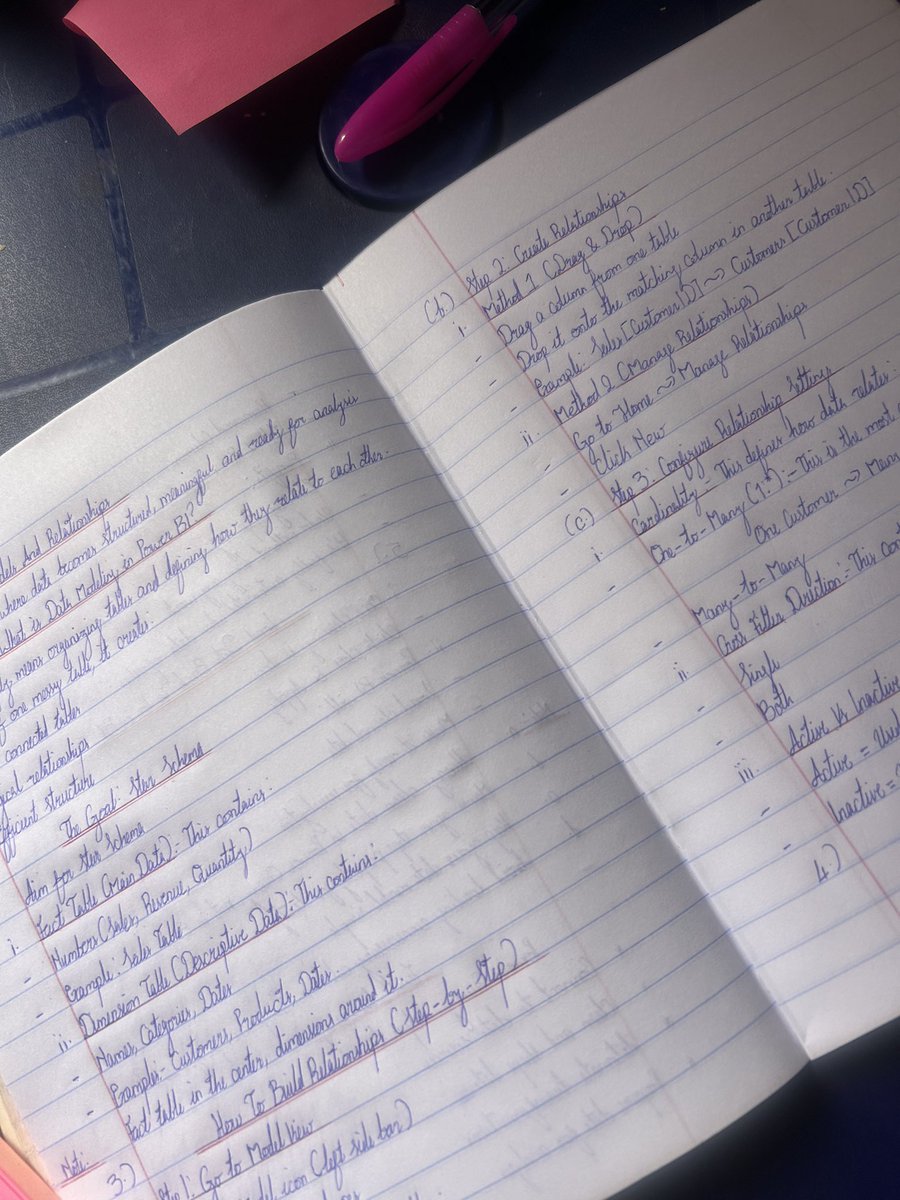 dels And Relationships
where data becomes structured, meaningful and ready for analysis
What is Data Modeling in Power BI?
ly means organizing tables and defining how they relate to each other.
of one messy table, it creates:
connected tables
gical relationships
fficient structure
The Goal: Star Schema
Aim for Star Schema
i. Fact Table (Main Data):- This contains:
- Numbers (Sales, Revenue, Quantity)
- Example: Sales Table
ii. Dimension Table (Descriptive Data):- This contains:
- Names, Categories, Dates
- Examples- Customers, Products, Dates.
Note: Fact table in the center, dimensions around it.
3.) How To Build Relationships (Step-by-Step)
Step 1: Go to Model View
icon (left side bar)
(b.) Step 2: Create Relationships
i. Method 1 (Drag & Drop)
- Drag a column from one table
- Drop it onto the matching column in another table.
- Example: Sales[CustomerID] ~> Customers [CustomerID]
ii. Method 2 (Manage Relationships)
- Go to Home ~> Manage Relationships
- Click New
(c.) Step 3: Configure Relationship Setting
i. Cardinality:- This defines how data relates:
- One-to-Many (1:*):- This is the most
One Customer ~> Many
- Many-to-Many
ii. Cross Filter Direction:- This con
- Single
- Both
iii. Active Vs Inactive
- Active =
- Inactive =
4.)